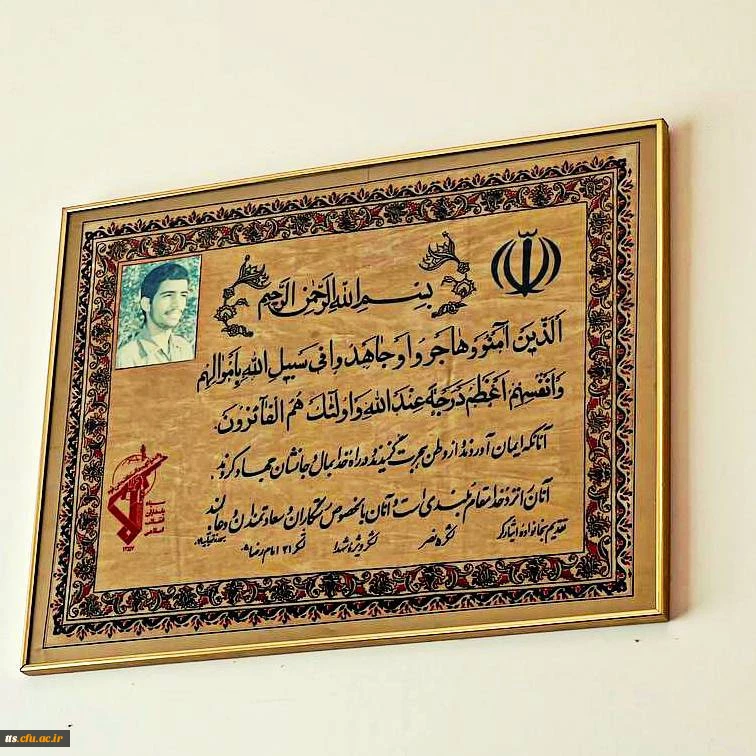 بِسْمِ اللهِ الرَّحْمٰنِ الرَّحيمِ
اَلَّذينَ آمَنُوا وَهاجَرُوا وَجاهَدُوا فی سَبيلِ اللهِ بِاَمْوالِهِمْ
وَاَنْفُسِهِمْ اَعْظَمُ دَرَجَةً عِنْدَ اللهِ وَاُولئِكَ هُمُ الْفآئِزُونَ.
آنانکه ایمان آوردند و از وطن هجرت گزیدند و در راه خدا بمال و جانشان جهاد کردند.
آنان را نزد خدا مقام بلندی است و آنان بالخصوص رستگاران و سعادتمندان دو جهانند
تقدیم بخانواده ایثارگر
لشکر ۵ نصر لشکر ویژه شهدا لشکر ۲۱ امام رضا
سپاه
پاسداران
انقلاب
اسلامی
۱۳۵۷
tts.cfu.ac.ir